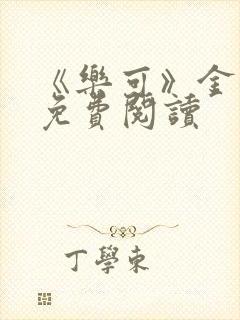 《樂可》全
免費閱讀
丁學東